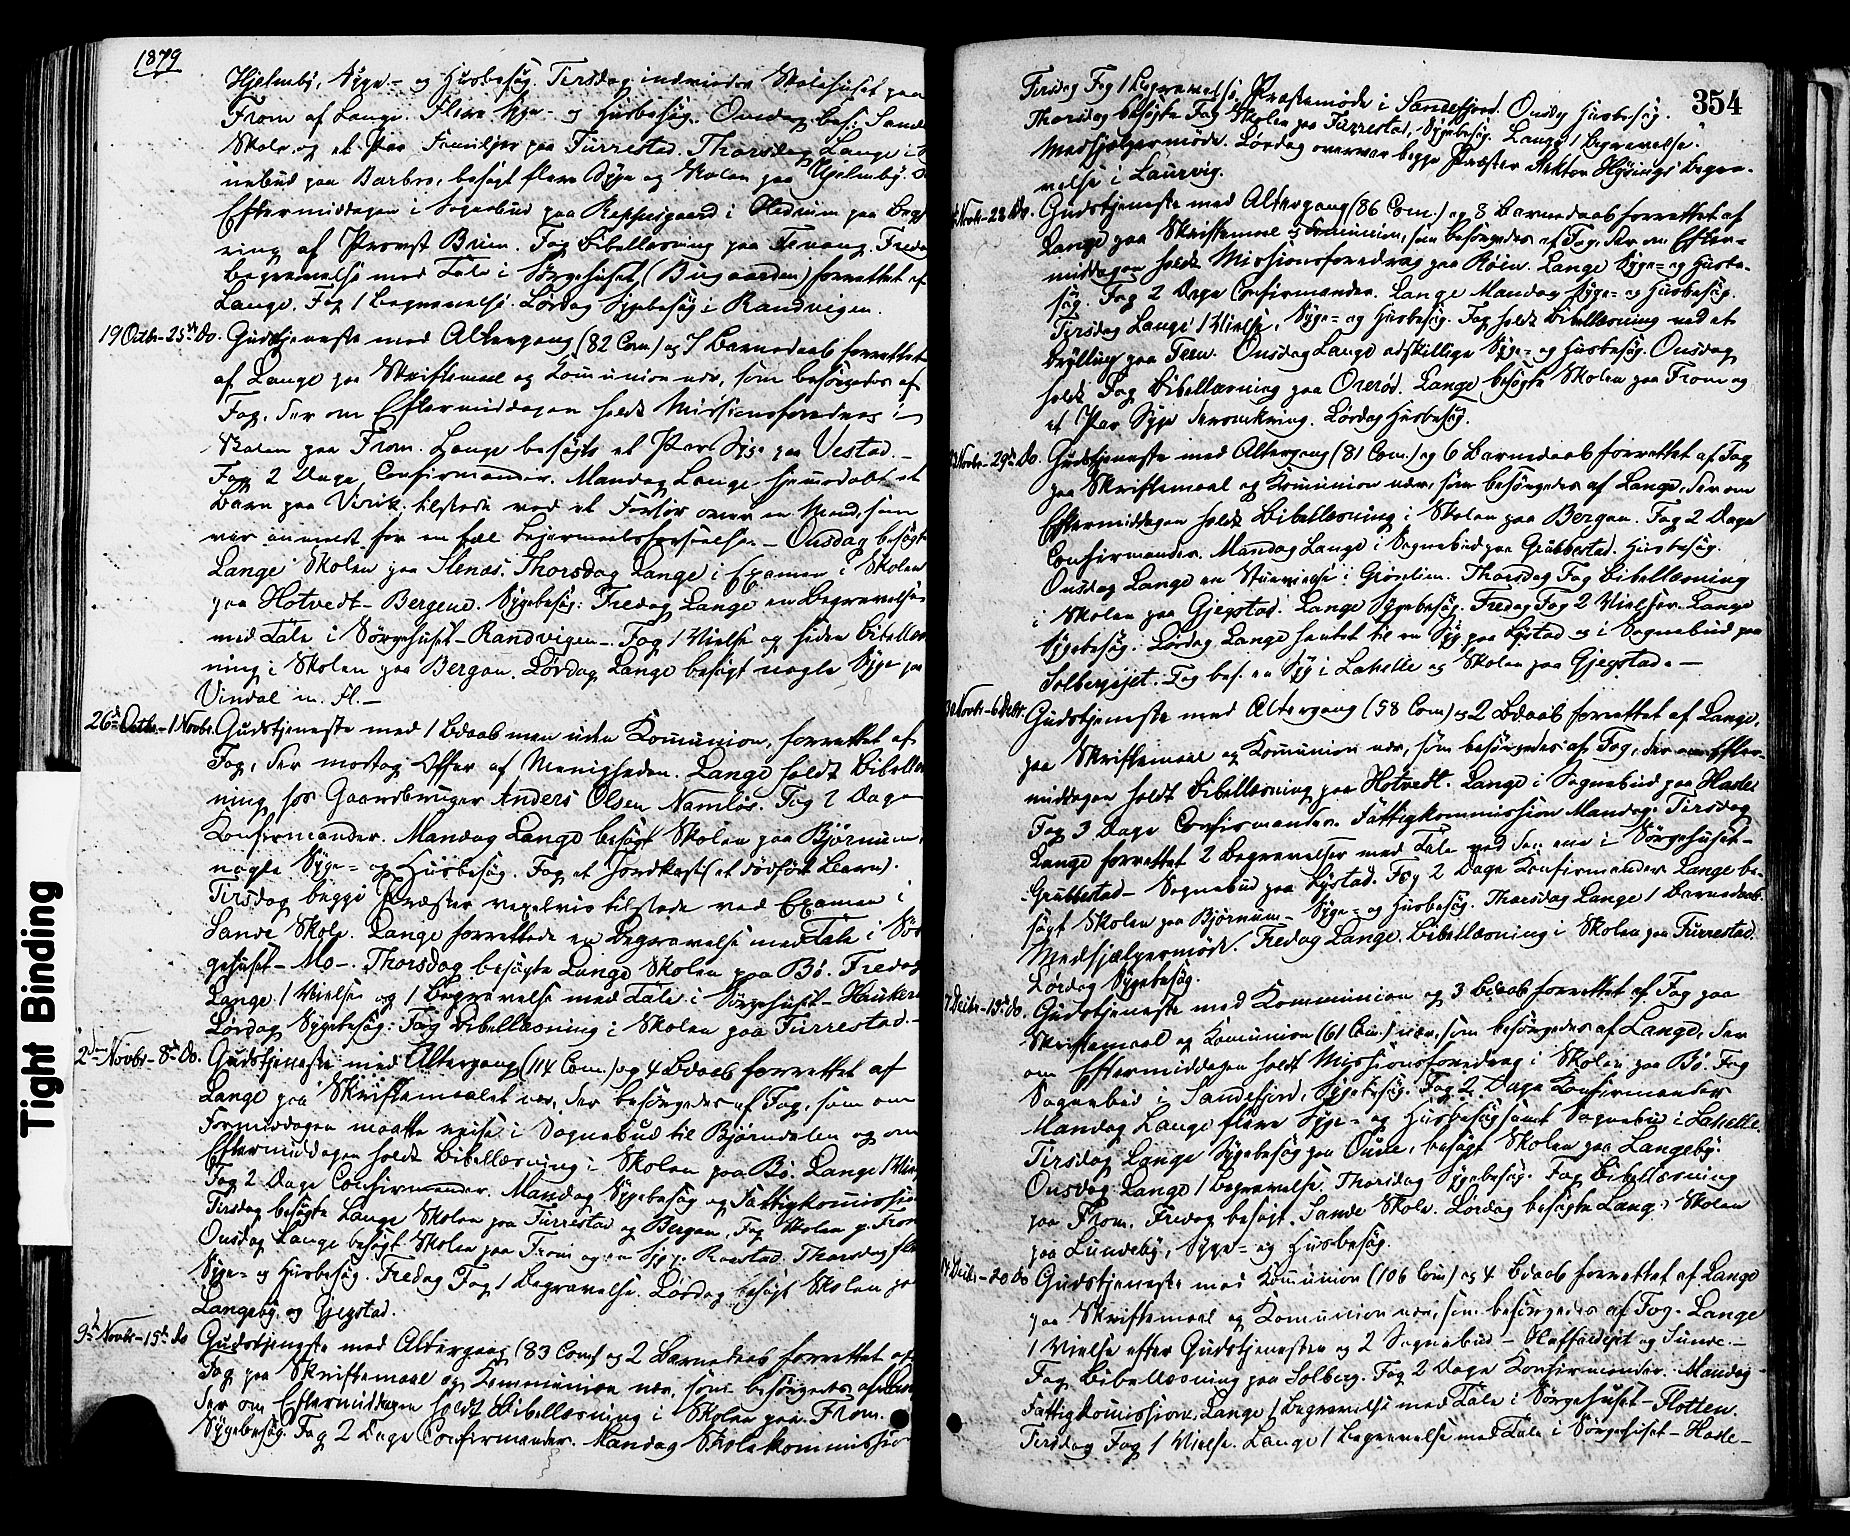 1879
Hjelmby, Syge- og Husbesøg. Tirsdag indviedes Skolehuset paa
From af Lange. Flere Syge- og Husbesøg. Onsdag bes: Sande
Skole og et Par Familjer paa Furrestad. Thorsdag Lange i
nebud paa Barbro, besøgt flere Syge og Skolen paa Hjelmby.
Eftermiddagen i Sognebud paa Reppesgaard i Hedrum paa Begj
ring af Provst Brun. Fog Bibellæsning paa Fevang. Fredag
Begravelse med Tale i Sørgehuset (Bugaarden) forrettet af
Lange. Fog 1 Begravelse. Lørdag Sygebesøg i Randvigen.
19 Octbr-25de Do. Gudstjeneste med Altergang (82 Com) og 5 Barnedaab forrettet
af Lange paa Skriftemaal og Kommunion nær, som besørgedes af
Fog, der om Eftermiddagen holdt Missionsforedrag i
Skolen paa From. Lange besøgte et Par Syge paa Vestad. -
Fog 2 Dage Confirmander. Mandag Lange hjemmedøbt et
Barn paa Virik, tilstede ved et Forhør over en Mand, som
var anmeldt for en fæl Leiermaalsforseelse - Onsdag besøgt
Lange Skolen paa Stenaas. Thorsdag Lange i Examen i Skolen
paa Hotvedt - Bergene. Sygebesøg: Fredag Lange en Begravelse
med Tale i Sørgehuset - Randvigen - Fog 1 Vielse og siden Bibellæs
ning i Skolen paa Bergan. Lørdag Lange besøgt nogle Syge paa
Vindal m. fl. -
26de Octbr-1 Novbr. Gudstjeneste med 1 Bdaab men uden Kommunion, forrettet af
Fog, der modtog Offer af Menigheden. Lange holdt Bibellæs
ning hos Gaardbruger Anders Olsen Namløs. Fog 2 Dage
Konfirmander. Mandag Lange besøgt Skolen paa Bjørnum,
nogle Syge- og Husbesøg. Fog et Jordkast (et dødfødt Barn).
Tirsdag begge Præster vexelvis tilstede ved Examen i
Sande Skole. Lange forrettede en Begravelse med Tale i Sør
gehuset - Mo -. Thorsdag besøgte Lange Skolen paa Bø. Fredag
Lange 1 Vielse og 1 Begravelse med Tale i Sørgehuset - Haukerø
Lørdag Sygebesøg: Fog Bibellæsning i Skolen paa Furrestad. -
2den Novbr-8de Do. Gudstjeneste med Altergang (114 Com.) og 4 Bdaab forrettet af
Lange paa Skriftemaalet nær, der besørgedes af Fog, som om
Formiddagen maatte reise i Sognebud til Bjørndalen og om
Eftermiddagen holdt Bibellæsning i Skolen paa Bø. Lange 1 Viel
Fog 2 Dage Confirmander. Mandag Sygebesøg og Fattigkommission
Tirsdag besøgte Lange Skolen paa Furrestad og Bergan, Fog Skolen p. From
Onsdag Lange besøgt Skolen paa From og en Syg p. Raastad. Thorsdag fle
Syge- og Husbesøg. Fredag Fog 1 Begravelse. Lørdag besøgt Skolen paa
Langeby og Gjegstad.
9de Novbr-15de Do Gudstjeneste med Altergang (83 Com) og 2 Barnedaab forrettet af
Fog paa Skriftemaal og Kommunion nær, som besørgedes af Lan
der om Eftermiddagen holdt Bibellæsning i Skolen paa From.
Sygebesøg. Fog 2 Dage Confirmander. Mandag Skolekommissio
354
Tirsdag Fog 1 Begravelse, Præstemøde i Sandefjord. Onsdag Husbesøg.
Thorsdag besøgte Fog Skolen paa Furrestad, Sygebesøg. Lange 1 Begravelse.
Medhjælpermøde. Lørdag overvar begge Præster Rektor Hysings Begra-
velse i Laurvig.
Novbr-22de Do. Gudstjeneste med Altergang (86 Com.) og 8 Barnedaab forrettet af
Lange paa Skriftemaal og Communion, som besørgedes af Fog, der om Efter-
middagen holdt Missionsforedrag paa Røen. Lange Syge- og Husbe-
søg. Fog 2 Dage Confirmander. Lange Mandag Syge- og Husbesøg.
Tirsdag Lange 1 Vielse, Syge- og Husbesøg. Fog holdt Bibellæsning ved et
Brylluup paa Feen. Onsdag Lange adskillige Syge- og Husbesøg. Onsdag
holdt Fog Bibellæsning paa Orerød. Lange besøgte Skolen paa From og
et Par Syge deromkring. Lørdag Husbesøg.
Novbr-29de Do. Gudstjeneste med Altergang (81 Com.) og 6 Barnedaab forrettet af Fog
paa Skriftemaal og Kommunion nær, som besørgedes af Lange, der om
Eftermiddagen holdt Bibellæsning i Skolen paa Bergan. Fog 2 Dage
Confirmander. Mandag Lange i Sognebud paa Grubbestad. Husbesøg.
Onsdag Lange en Stuevielse i Grønlien. Thorsdag Fog Bibellæsning
i Skolen paa Gjegstad. Lange Sygebesøg. Fredag Fog 2 Vielser. Lange
Sygebesøg. Lørdag Lange hentet til en Syg paa Lystad og i Sognebud paa
Solbergejet. Fog bes. en Syg i Lahelle og Skolen paa Gjegstad. -
30 Novbr-6 Decbr. Gudstjeneste med Altergang (58 Com) og 2 Bdaab forrettet af Lange,
paa Skriftemaal og Kommunion nær, som besørgedes af Fog, der om Efter-
middagen holdt Bibellæsning paa Hotvedt. Lange i Sognebud paa Hasle
Fog 3 Dage Confirmander. Fattigkommission Mandag. Tirsdag
Lange forrettet 2 Begravelser med Tale ved den ene i Sørgehuset -
Grubbestad - Sognebud paa Lystad. Fog 2 Dage Konfirmander Lange be-
søgt Skolen paa Bjørnum - Syge- og Husbesøg. Thorsdag Lange 1 Barnedaab.
Medhjælpermøde. Fredag Lange Bibellæsning i Skolen paa Furrestad.
Lørdag Sygebesøg.
7 Decbr-13de Do. Gudstjeneste med Kommunion og 3 Bdaab forrettet af Fog paa
Skriftemaal og Komunion (61 Com.) nær, som besørgedes af Lange, der
om Eftermiddagen holdt Missionsforedrag i Skolen paa Bø. Fog
Sognebud i Sandefjord, Sygebesøg. Fog 2 Dage Konfirmander
Mandag Lange flere Syge- og Husbesøg samt Sognebud i Lahelle.
Tirsdag Lange Sygebesøg paa Oude, besøgt Skolen paa Langeby.
Onsdag Lange 1 Begravelse. Thorsdag Sygebesøg. Fog Bibellæsning
paa From. Fredag besøgt Sande Skole. Lørdag besøgte Lange Skolen
paa Lundeby, Syge- og Husbesøg.
14 Decbr-20 Do Gudstjeneste med Komunion (106 Com) og 4 Bdaab forrettet af Lange
paa Skriftemaal og Komunion nær, som besørgedes af Fog. Lange
1 Vielse efter Gudstjenesten og 2 Sognebud - Haffaldsejet og Sunde. -
Fog Bibellæsning paa Solberg. Fog 2 Dage Konfirmander. Mandag
Fattigkomission, Lange 1 Begravelse med Tale i Sørgehuset - Flotten.
Tirsdag Fog 1 Vielse. Lange 1 Begravelse med Tale i Sørgehuset - Hasle -
Tight Binding